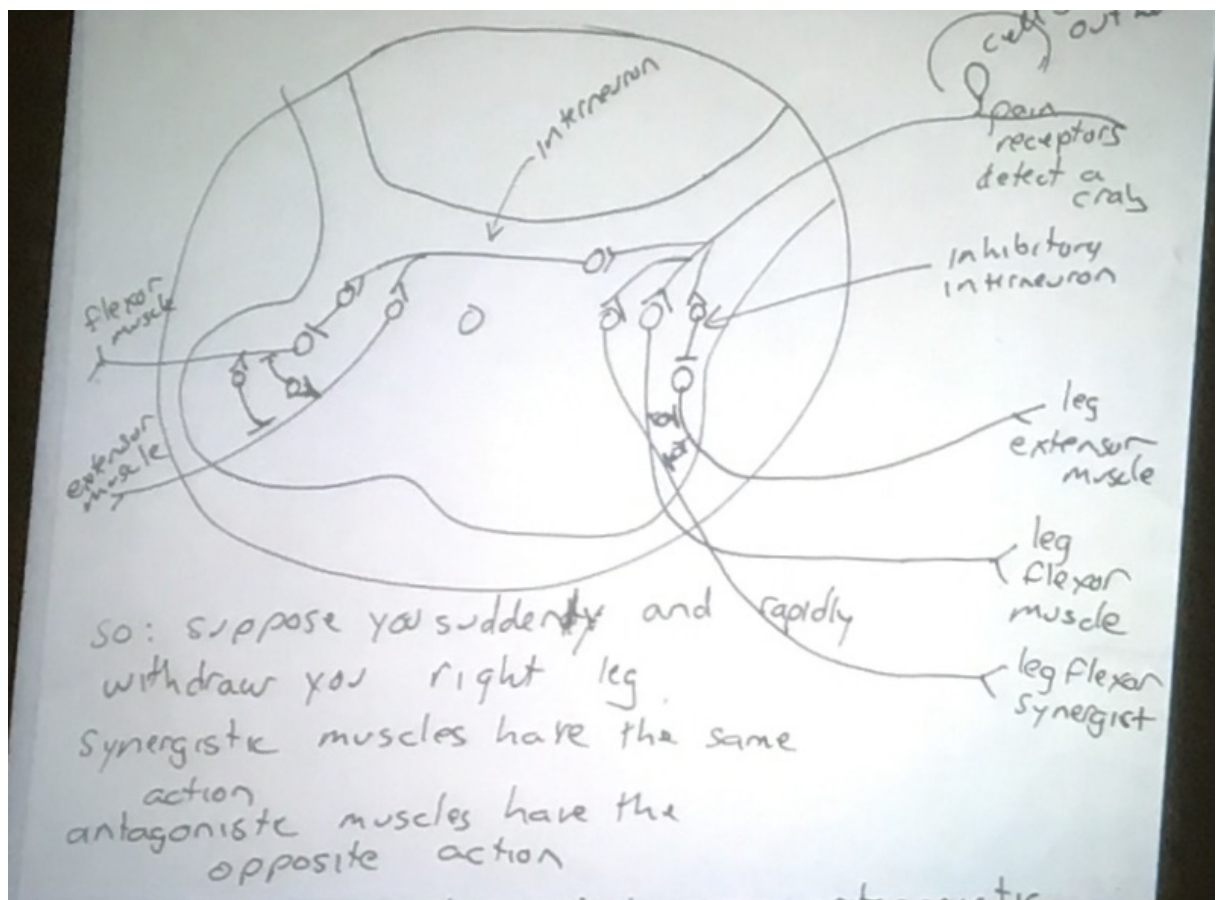 cell
out
pain
receptors
detect a
crab
interneuron
inhibitory
interneuron
flexor
muscle
extensor
muscle
leg
extensor
muscle
leg
flexor
muscle
leg flexor
synergist
so: suppose you suddenly and rapidly
withdraw you right leg
synergistic muscles have the same
action
antagonistc muscles have the
opposite action